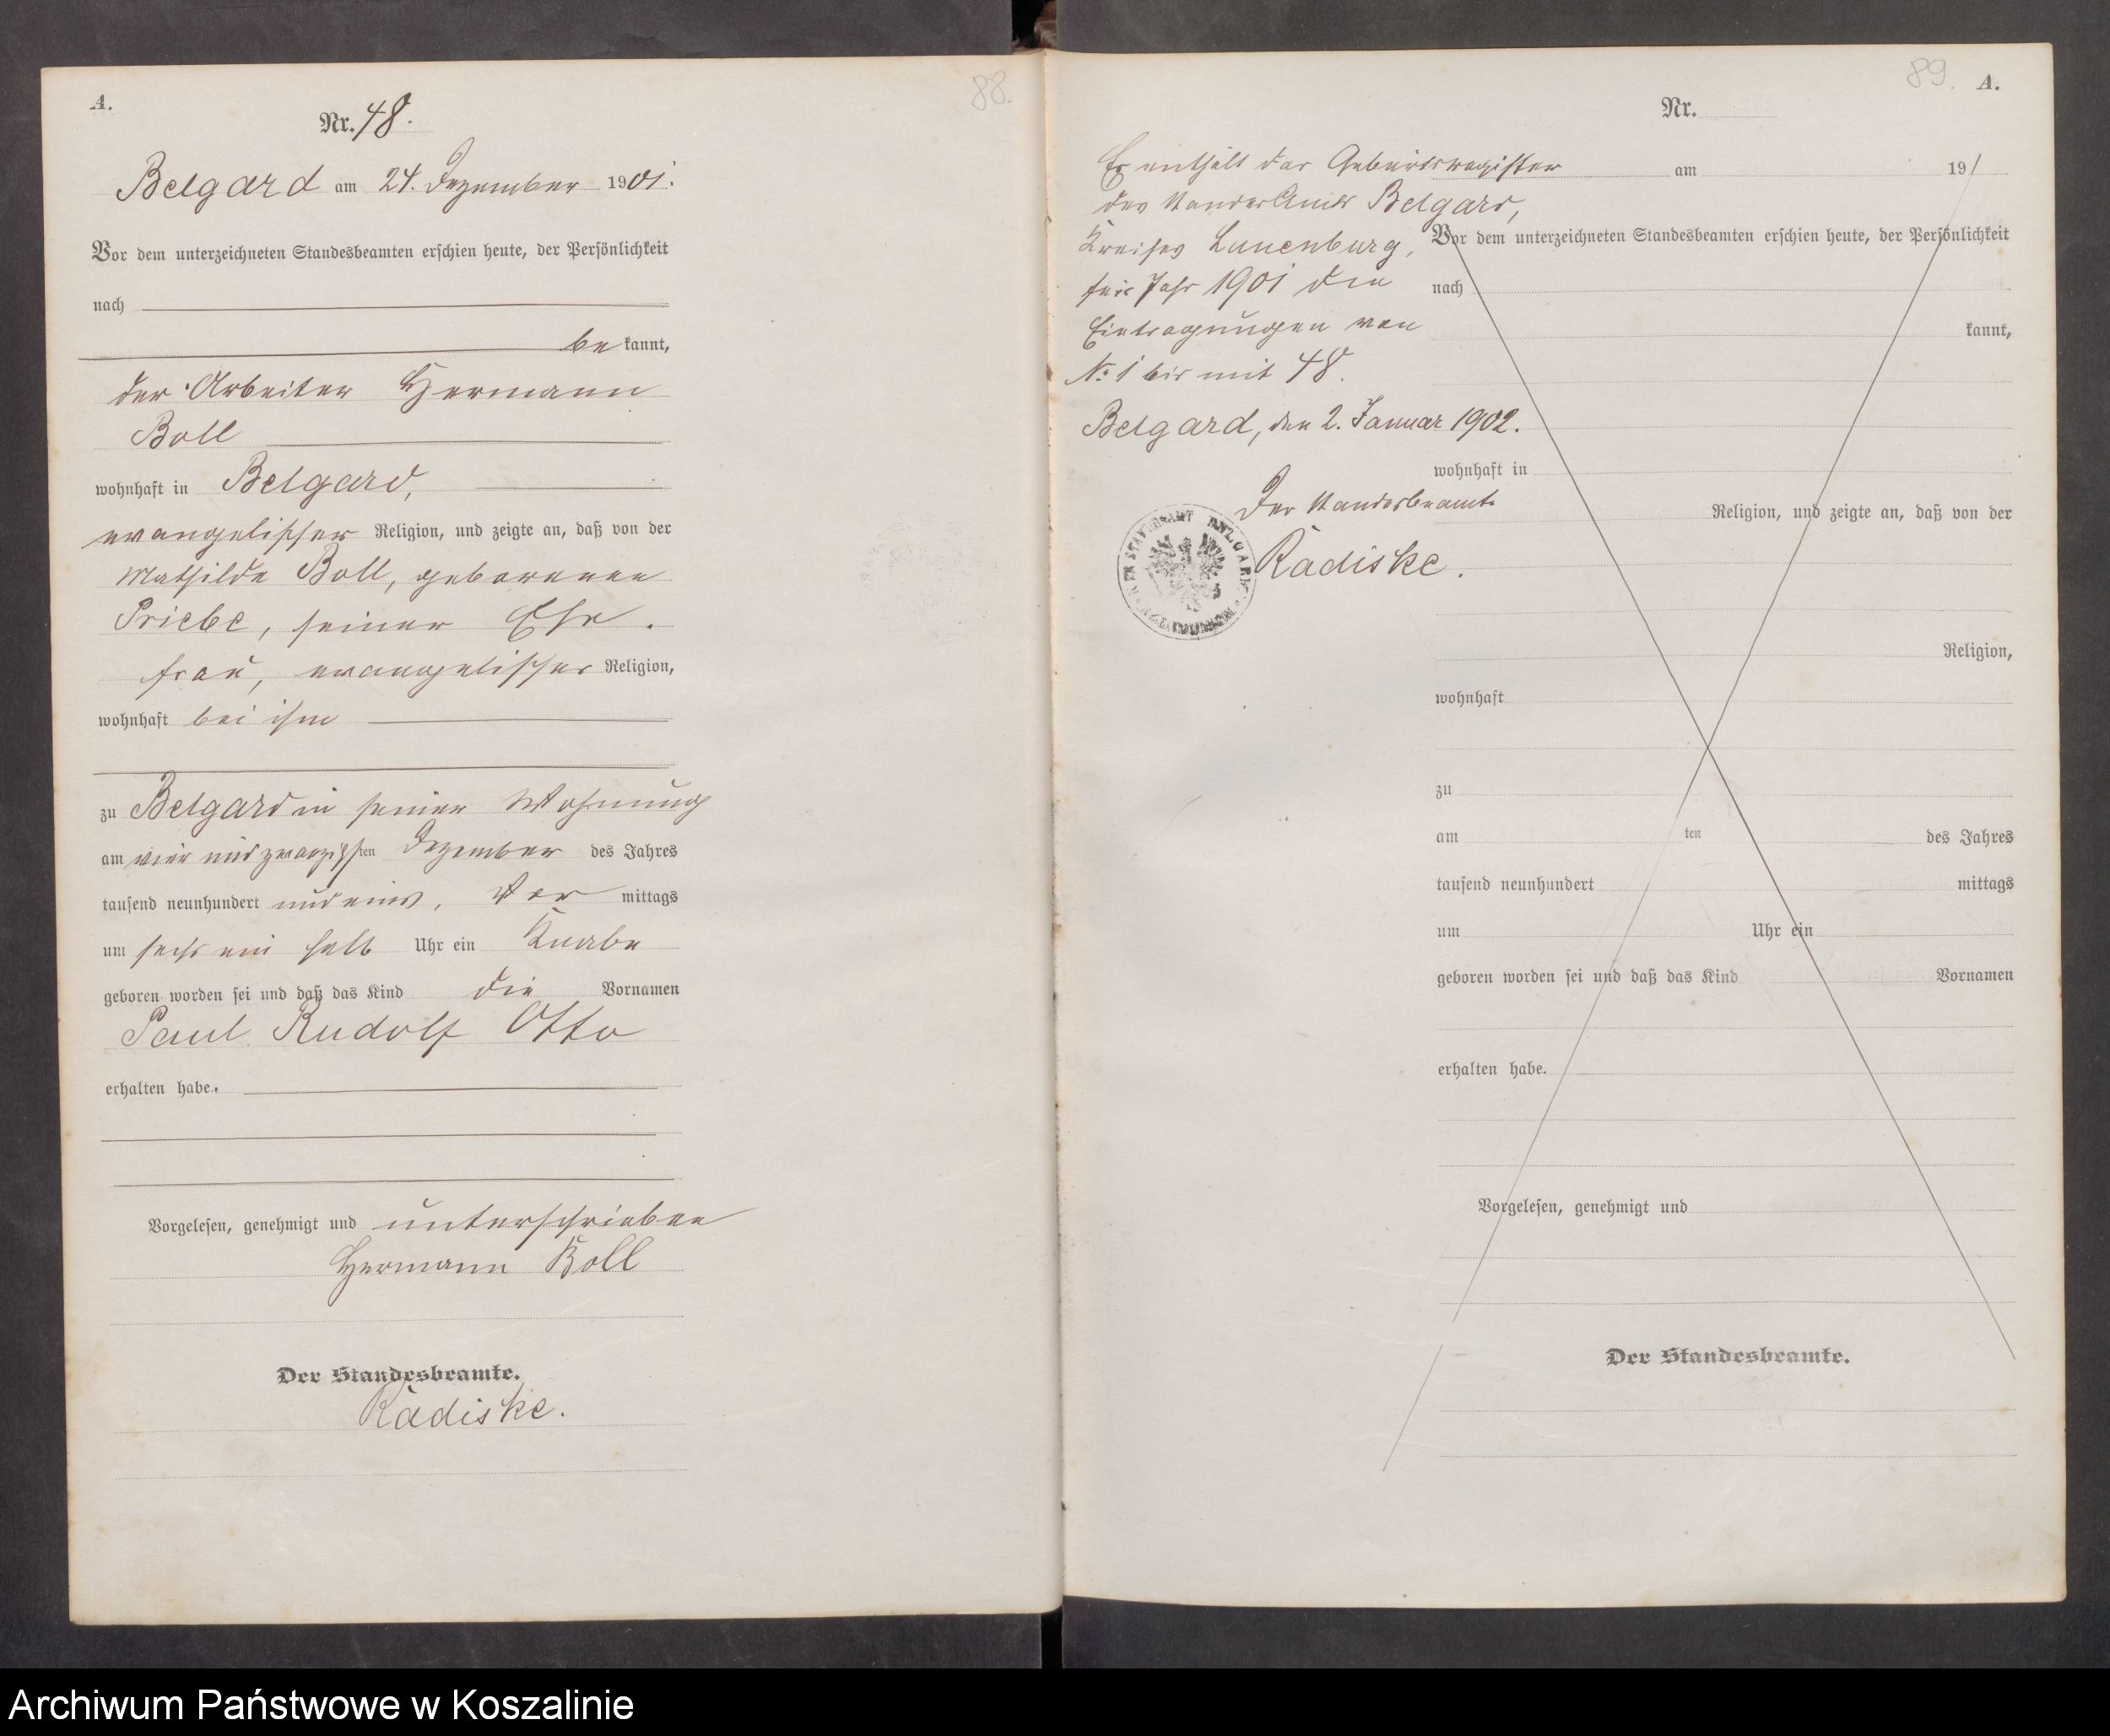 A.
88.
Nr. 48.
Belgard am 24. Dezember 1901.
Vor dem unterzeichneten Standesbeamten erschien heute, der Persönlichkeit
nach
be kannt,
der Arbeiter Hermann
Boll
wohnhaft in Belgard,
evangelischer Religion, und zeigte an, daß von der
Mathilde Boll, geborenen
Priebe, seiner Ehe-
frau, evangelischer Religion,
wohnhaft bei ihm
zu Belgard in seiner Wohnung
am vier und zwanzigsten Dezember des Jahres
tausend neunhundert und eins, Vor mittags
um sechs ein halb Uhr ein Knabe
geboren worden sei und daß das Kind die Vornamen
Paul Rudolf Otto
erhalten habe.
Vorgelesen, genehmigt und unterschrieben
Hermann Boll
Der Standesbeamte.
Radiske.
89.
A.
Nr.
Es enthält das Geburtsregister
des Standes Amts Belgard,
Kreises Lauenburg,
fürs Jahr 1901 die
Eintragungen von
No 1 bis mit 48.
Belgard, den 2. Januar 1902.
Der Standesbeamte
Radiske.
am 19
Vor dem unterzeichneten Standesbeamten erschien heute, der Persönlichkeit
nach
kannt,
wohnhaft in
Religion, und zeigte an, daß von der
Religion,
wohnhaft
zu
am ten des Jahres
tausend neunhundert mittags
um Uhr ein
geboren worden sei und daß das Kind Vornamen
erhalten habe.
Vorgelesen, genehmigt und
Der Standesbeamte.
Archiwum Państwowe w Koszalinie